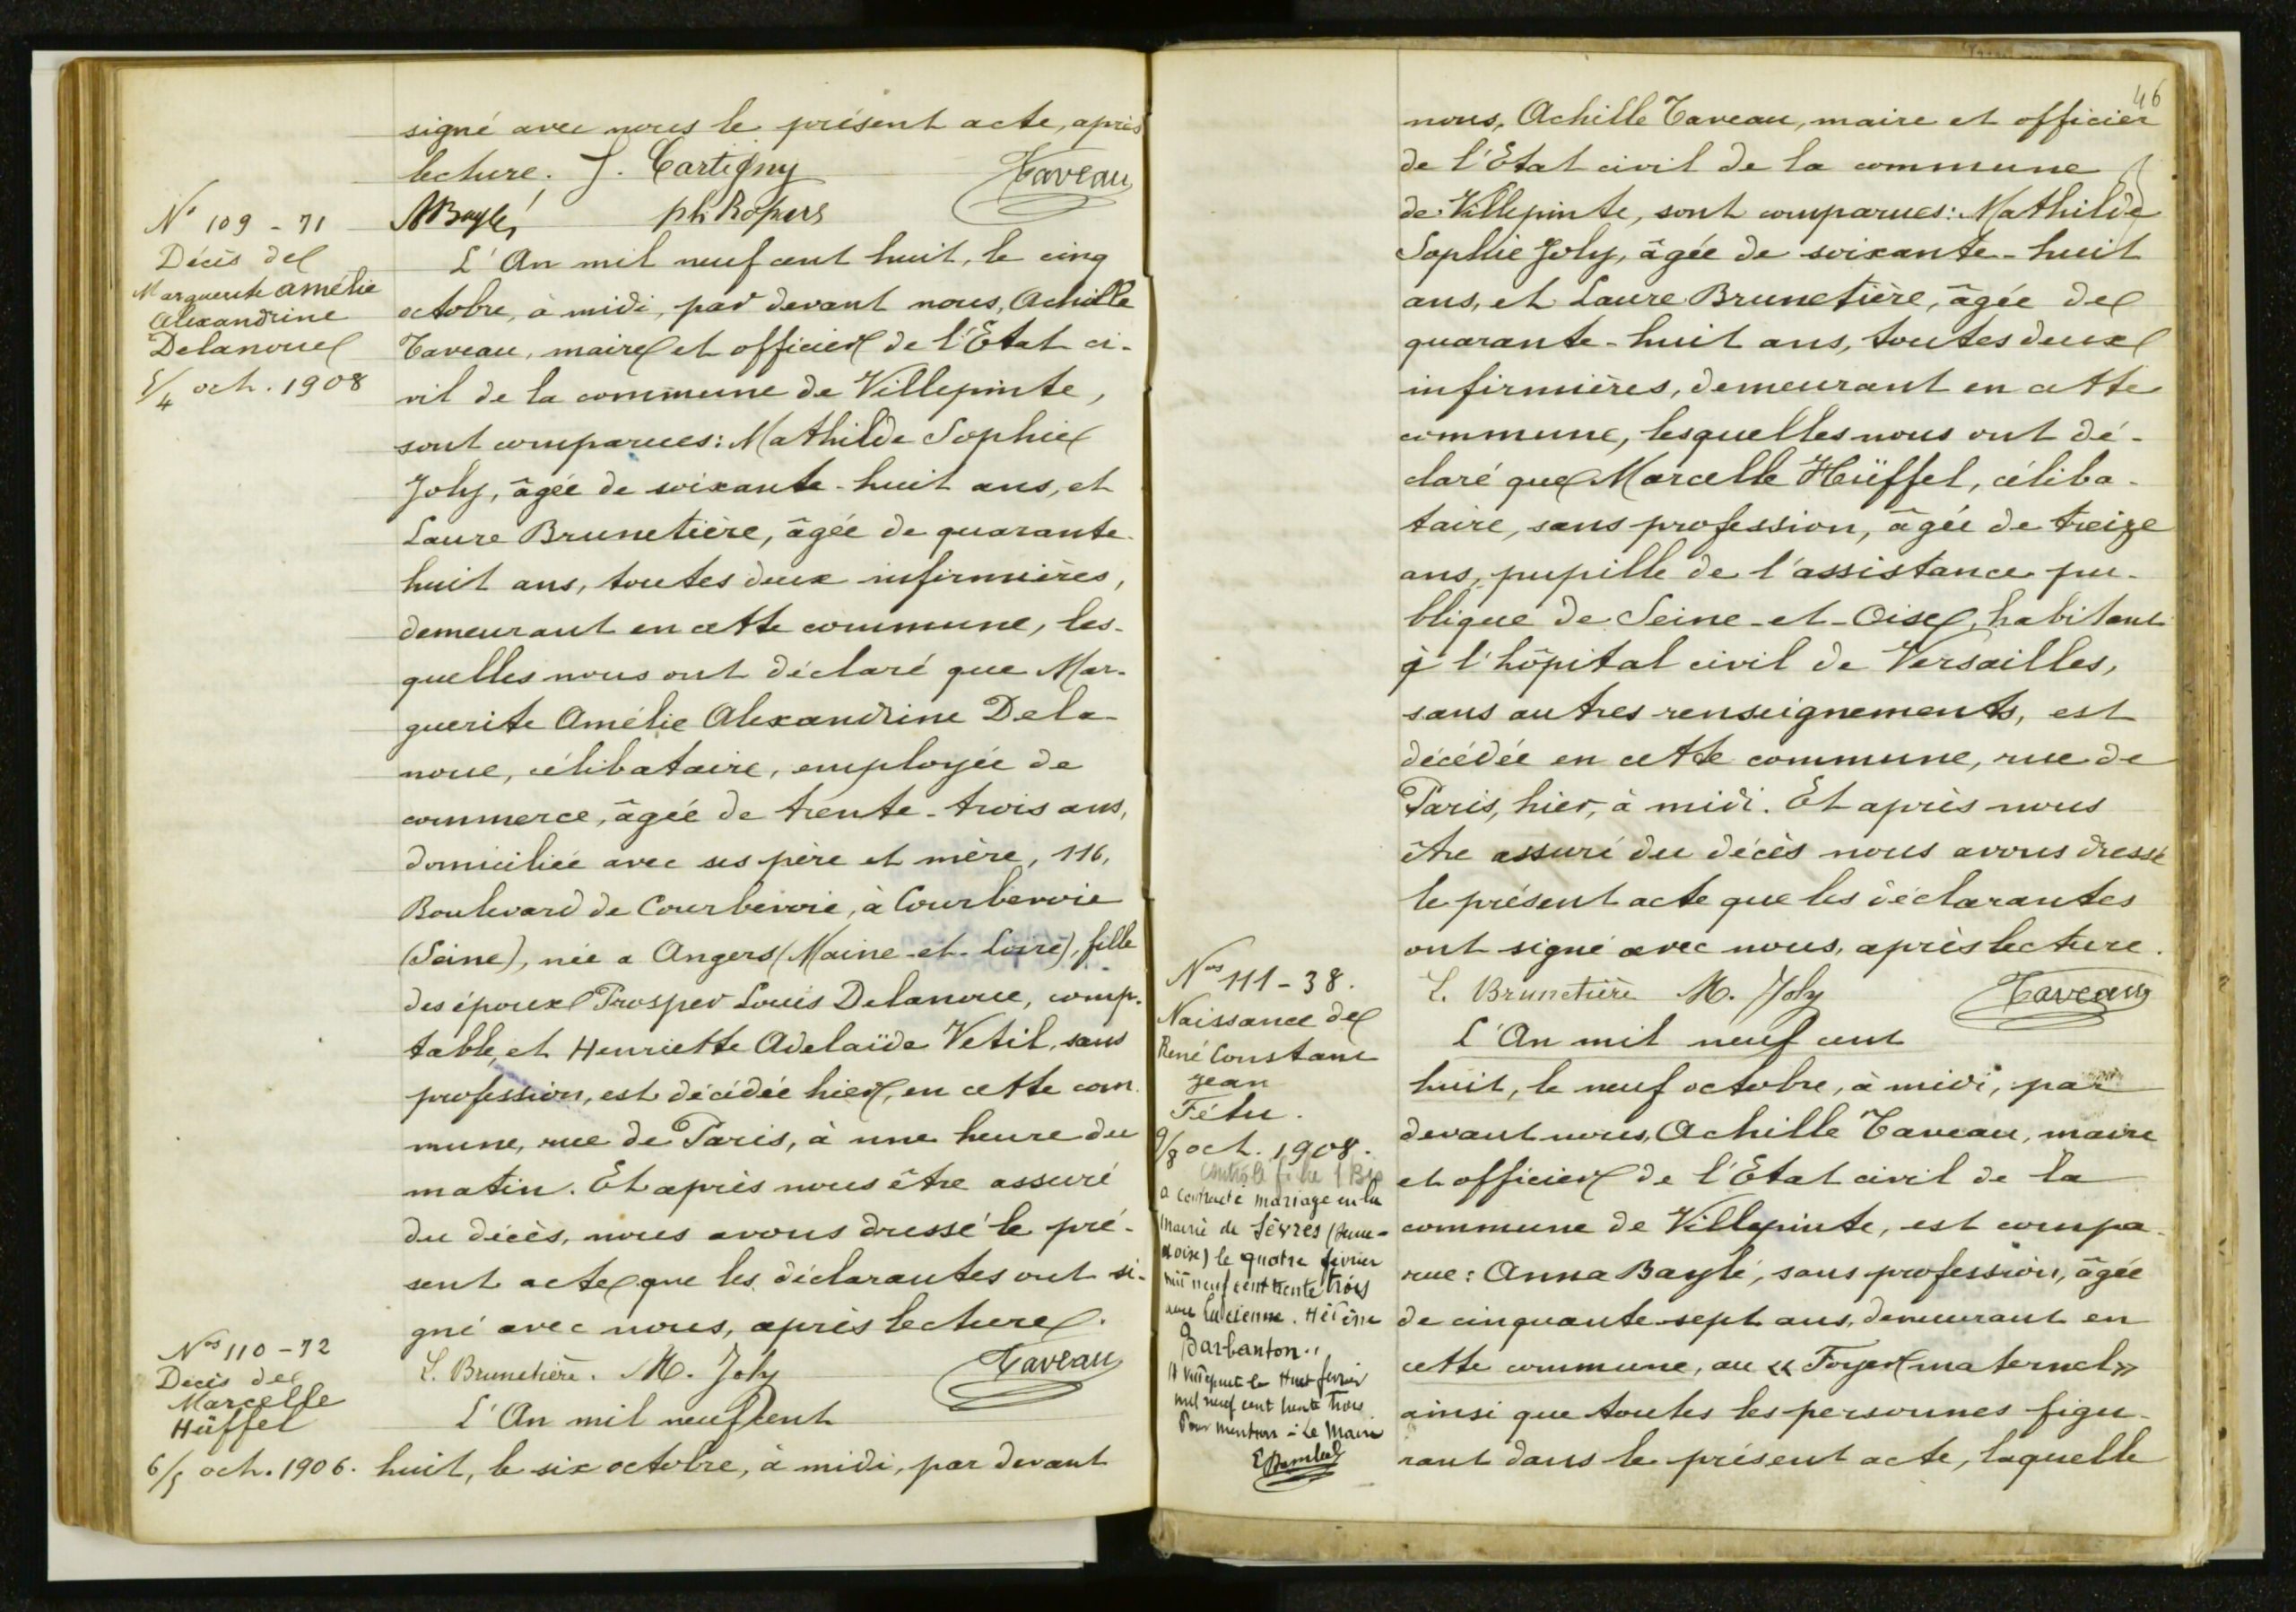 signé avec nous le présent acte, après
lecture. J. Cartigny Taveau
ABaylé ph Ropers
N° 109 - 71
Décès de
Marguerite Amélie
Alexandrine
Delanoue
5/4 oct. 1908
L'An mil neuf cent huit, le cinq
octobre, à midi, par devant nous, Achille
Taveau, maire et officier de l'Etat ci-
vil de la commune de Villepinte,
sont comparues: Mathilde Sophie
Joly, âgée de soixante-huit ans, et
Laure Brunetière, âgée de quarante-
huit ans, toutes deux infirmières,
demeurant en cette commune, les-
quelles nous ont déclaré que Mar-
guerite Amélie Alexandrine Dela-
noue, célibataire, employée de
commerce, âgée de trente-trois ans,
domiciliée avec ses père et mère, 116,
Boulevard de Courbevoie, à Courbevoie
(Seine), née a Angers (Maine-et-Loire), fille
des époux Prosper Louis Delanoue, comp-
table, et Henriette Adelaïde Vetil, sans
profession, est décédée hier, en cette com-
mune, rue de Paris, à une heure du
matin. Et après nous être assuré
du décès, nous avons dressé le pré-
sent acte que les déclarantes ont si-
gné avec nous, après lecture.
L. Brunetière. M. Joly Taveau
Nos 110 - 72
Décès de
Marcelle
Hüffel
6/5 oct. 1906.
L'An mil neuf cent
huit, le six octobre, à midi, par devant
46
nous, Achille Taveau, maire et officier
de l'Etat civil de la commune
de Villepinte, sont comparues: Mathilde
Sophie Joly, âgée de soixante-huit
ans, et Laure Brunetière, âgée de
quarante-huit ans, toutes deux
infirmières, demeurant en cette
commune, lesquelles nous ont dé-
claré que Marcelle Hüffel, céliba-
taire, sans profession, âgée de treize
ans, pupille de l'assistance pu-
blique de Seine-et-Oise, habitant
à l'hôpital civil de Versailles,
sans autres renseignements, est
décédée en cette commune, rue de
Paris, hier, à midi. Et après nous
être assuré du décès nous avons dressé
le présent acte que les déclarantes
ont signé avec nous, après lecture.
L. Brunetière M. Joly Taveau
Nos 111 - 38.
Naissance de
René Constant
Jean
Fétu.
9/8 oct. 1908.
a contracté mariage en la
mairie de Sèvres (Seine-
&oise) le quatre février
mil neuf cent trente trois
avec Lucienne. Hélène
Barbanton.
A Villepinte le Huit février
mil neuf cent trente trois
Pour mention - Le Maire
L'An mil neuf cent
huit, le neuf octobre, à midi, par
devant nous, Achille Taveau, maire
et officier de l'Etat civil de la
commune de Villepinte, est compa-
rue: Anna Baylé, sans profession, âgée
de cinquante-sept ans, demeurant en
cette commune, au « Foyer maternel »
ainsi que toutes les personnes figu-
rant dans le présent acte, laquelle